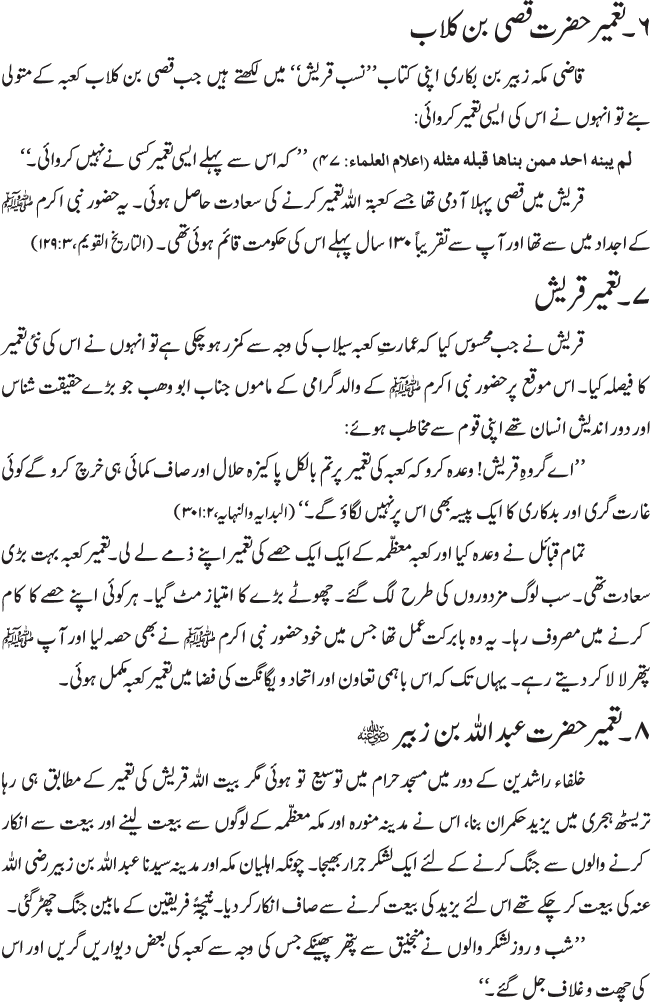 ۶۔ تعمیر حضرت قصی بن کلاب
قاضی مکہ زبیر بن بکاری اپنی کتاب ’’نسب قریش‘‘ میں لکھتے ہیں جب قصی بن کلاب کعبہ کے متولی
بنے تو انہوں نے اس کی ایسی تعمیر کروائی:
لم یبنه احد ممن بناها قبله مثله (اعلام العلماء: ۴۷) ’’ کہ اس سے پہلے ایسی تعمیر کسی نے نہیں کروائی۔‘‘
قریش میں قصی پہلا آدمی تھا جسے کعبۃ اللہ تعمیر کرنے کی سعادت حاصل ہوئی۔ یہ حضور نبی اکرم ﷺ
کے اجداد میں سے تھا اور آپ سے تقریباً ۱۳۰ سال پہلے اس کی حکومت قائم ہوئی تھی۔ (التاریخ القویم، ۳:۱۲۹)
۷۔ تعمیر قریش
قریش نے جب محسوس کیا کہ عمارتِ کعبہ سیلاب کی وجہ سے کمزر ہو چکی ہے تو انہوں نے اس کی نئی تعمیر
کا فیصلہ کیا۔ اس موقع پر حضور نبی اکرم ﷺ کے والد گرامی کے ماموں جناب ابو وھب جو بڑے حقیقت شناس
اور دور اندیش انسان تھے اپنی قوم سے مخاطب ہوئے:
’’اے گروہِ قریش! وعدہ کرو کہ کعبہ کی تعمیر پر تم بالکل پاکیزہ حلال اور صاف کمائی ہی خرچ کرو گے کوئی
غارت گری اور بدکاری کا ایک پیسہ بھی اس پر نہیں لگاؤ گے۔‘‘ (البدایہ والنہایہ، ۲:۳۰۱)
تمام قبائل نے وعدہ کیا اور کعبہ معظّمہ کے ایک ایک حصے کی تعمیر اپنے ذمے لے لی۔ تعمیر کعبہ بہت بڑی
سعادت تھی۔ سب لوگ مزدوروں کی طرح لگ گئے۔ چھوٹے بڑے کا امتیاز مٹ گیا۔ ہر کوئی اپنے حصے کا کام
کرنے میں مصروف رہا۔ یہ وہ بابرکت عمل تھا جس میں خود حضور نبی اکرم ﷺ نے بھی حصہ لیا اور آپ ﷺ
پتھر لا لا کر دیتے رہے۔ یہاں تک کہ اس باہمی تعاون اور اتحاد و یگانگت کی فضا میں تعمیر کعبہ مکمل ہوئی۔
۸۔ تعمیر حضرت عبد اللہ بن زبیر رضی اللہ عنہ
خلفاء راشدین کے دور میں مسجد حرام میں توسیع تو ہوئی مگر بیت اللہ قریش کی تعمیر کے مطابق ہی رہا
تریسٹھ ہجری میں یزید حکمران بنا، اس نے مدینہ منورہ اور مکہ معظّمہ کے لوگوں سے بیعت لینے اور بیعت سے انکار
کرنے والوں سے جنگ کرنے کے لئے ایک لشکر جرار بھیجا۔ چونکہ اہلیان مکہ اور مدینہ سیدنا عبد اللہ بن زبیر رضی اللہ
عنہ کی بیعت کر چکے تھے اس لئے یزید کی بیعت کرنے سے صاف انکار کر دیا۔ نتیجۃً فریقین کے مابین جنگ چھڑ گئی۔
’’شب و روز لشکر والوں نے منجنیق سے پتھر پھینکے جس کی وجہ سے کعبہ کی بعض دیواریں گریں اور اس
کی چھت و غلاف جل گئے۔‘‘